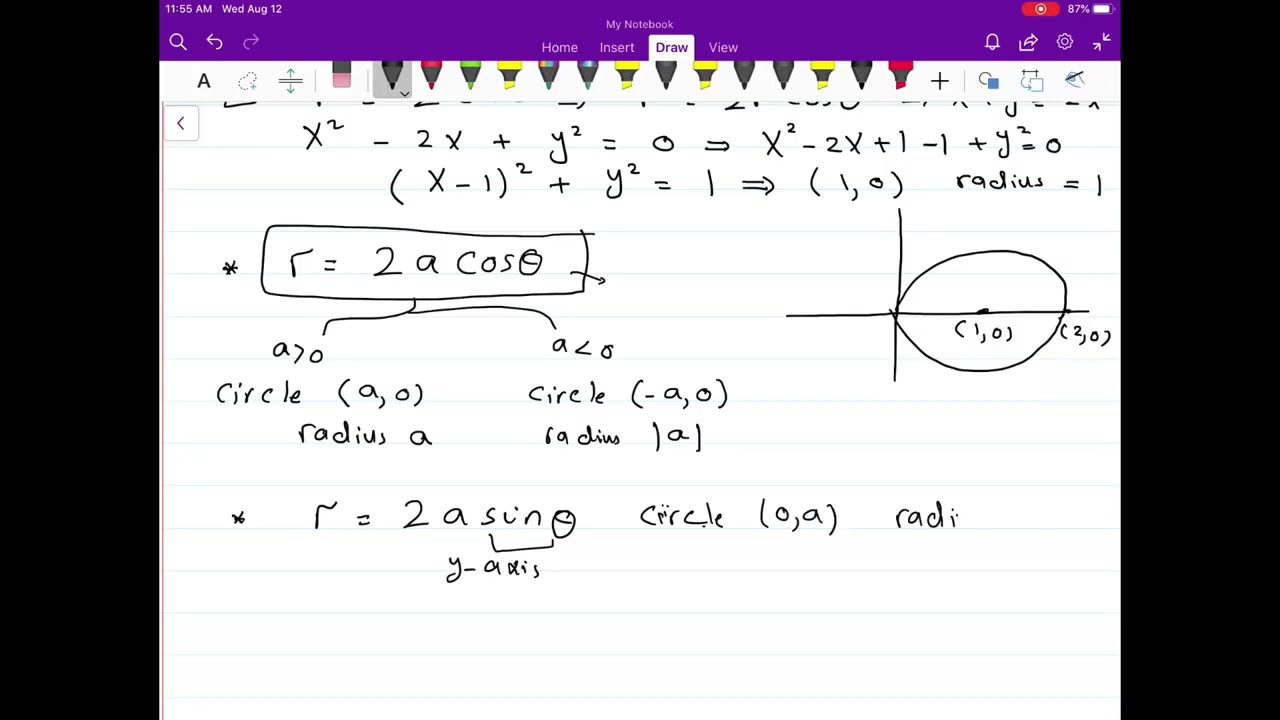 11:55 AM Wed Aug 12
87%
My Notebook
Home Insert Draw View
A
x² - 2x + y² = 0 ⇒ x² - 2x + 1 - 1 + y² = 0
(x-1)² + y² = 1 ⇒ (1,0) radius = 1
* r = 2 a cosθ →
(1,0) (2,0)
a>0 a<0
circle (a,0) circle (-a,0)
radius a radius |a|
* r = 2 a sinθ circle (0,a) radi
y-axis